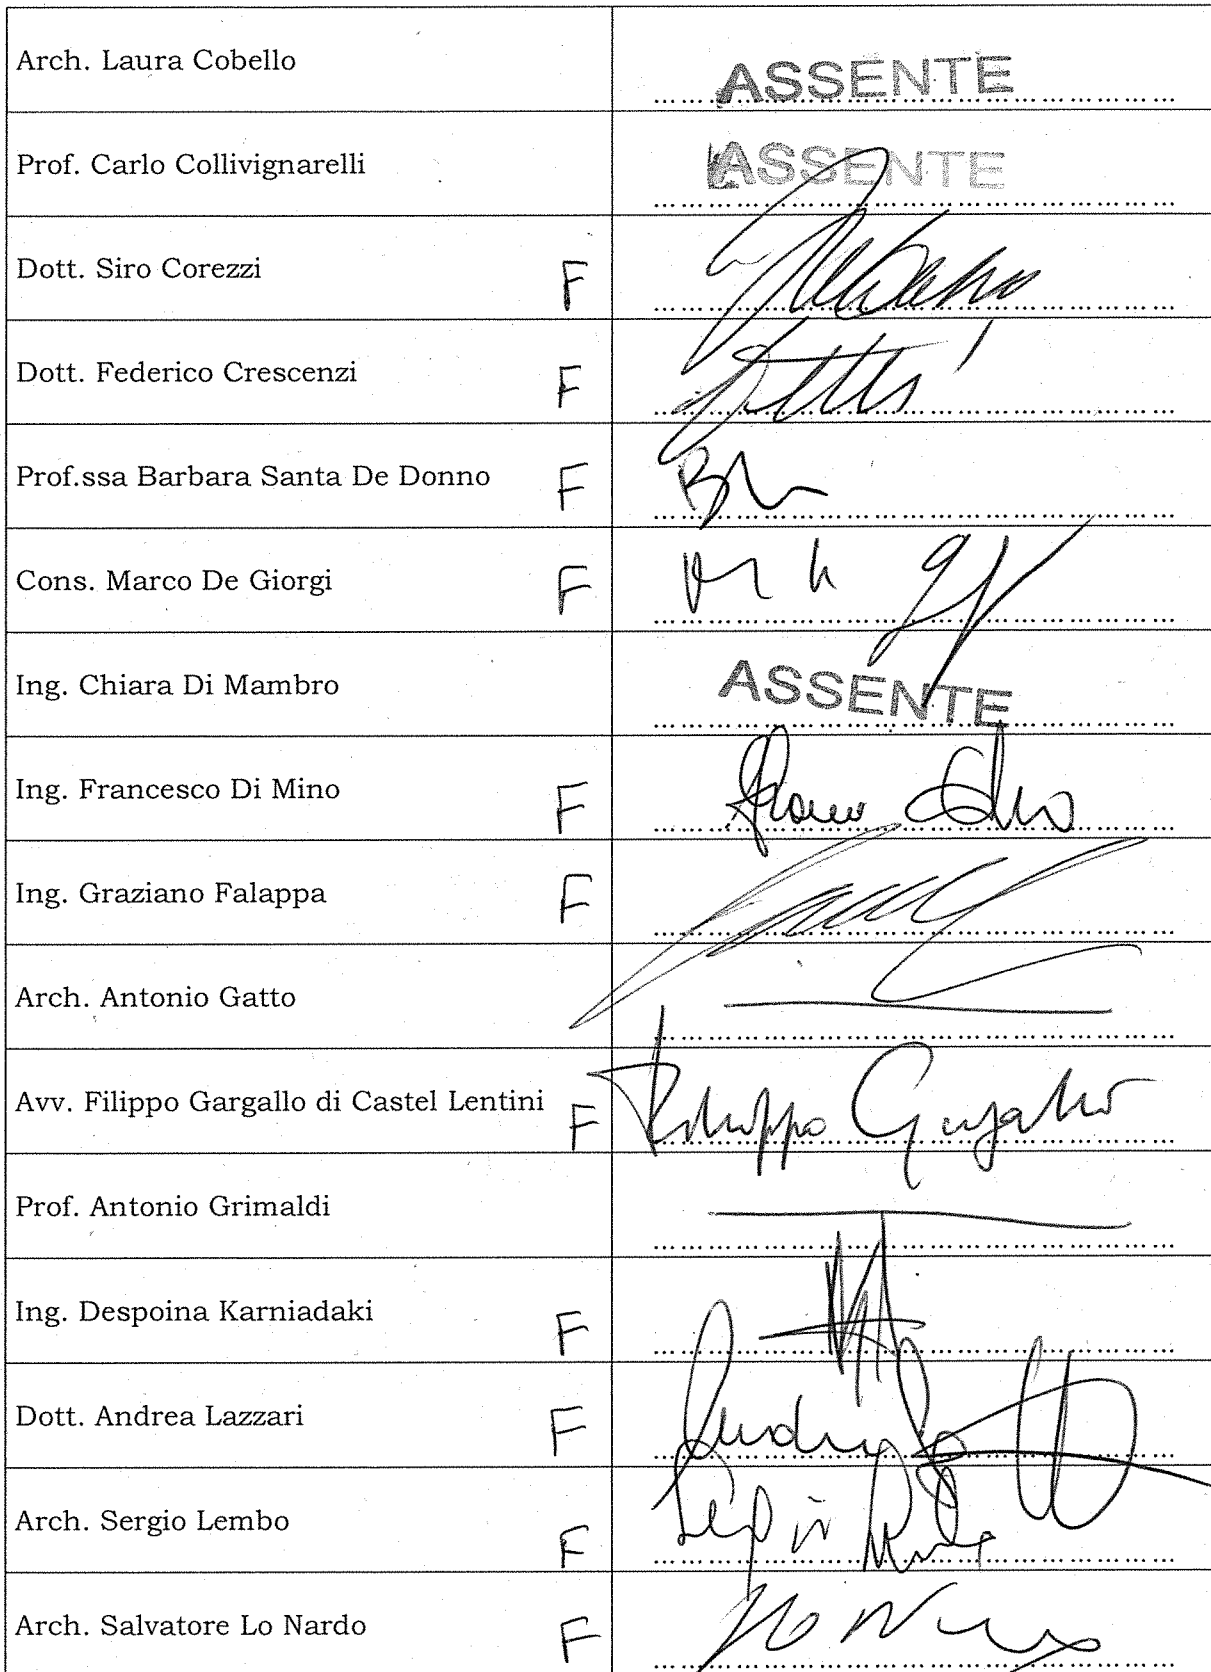 Arch. Laura Cobello
ASSENTE
Prof. Carlo Collivignarelli
ASSENTE
Dott. Siro Corezzi F
Dott. Federico Crescenzi F
Prof.ssa Barbara Santa De Donno F
Cons. Marco De Giorgi F
Ing. Chiara Di Mambro
ASSENTE
Ing. Francesco Di Mino F
Ing. Graziano Falappa F
Arch. Antonio Gatto
Avv. Filippo Gargallo di Castel Lentini F
Filippo Gargallo
Prof. Antonio Grimaldi
Ing. Despoina Karniadaki F
Dott. Andrea Lazzari F
Arch. Sergio Lembo F
Arch. Salvatore Lo Nardo F